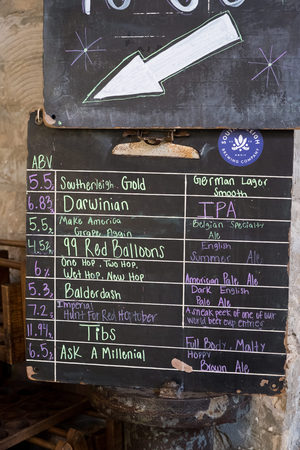 TO GO
SOUTHERLEIGH
BREWING COMPANY
ABV
5.5 Southerleigh Gold German Lager Smooth
6.83 Darwinian IPA
5.5% Make America Grape Again Belgian Specialty Ale
4.52% 99 Red Balloons English Summer Ale
6% One Hop, Two Hop, Wet Hop, New Hop American Pale Ale
5.3% Balderdash Dark English Pale Ale
7.2% Imperial Hunt For Red Hoptober A sneak peek of one of our world beer cup entries
11.94% Tibs Full Body, Malty
6.5% Ask A Millenial Hoppy Brown Ale